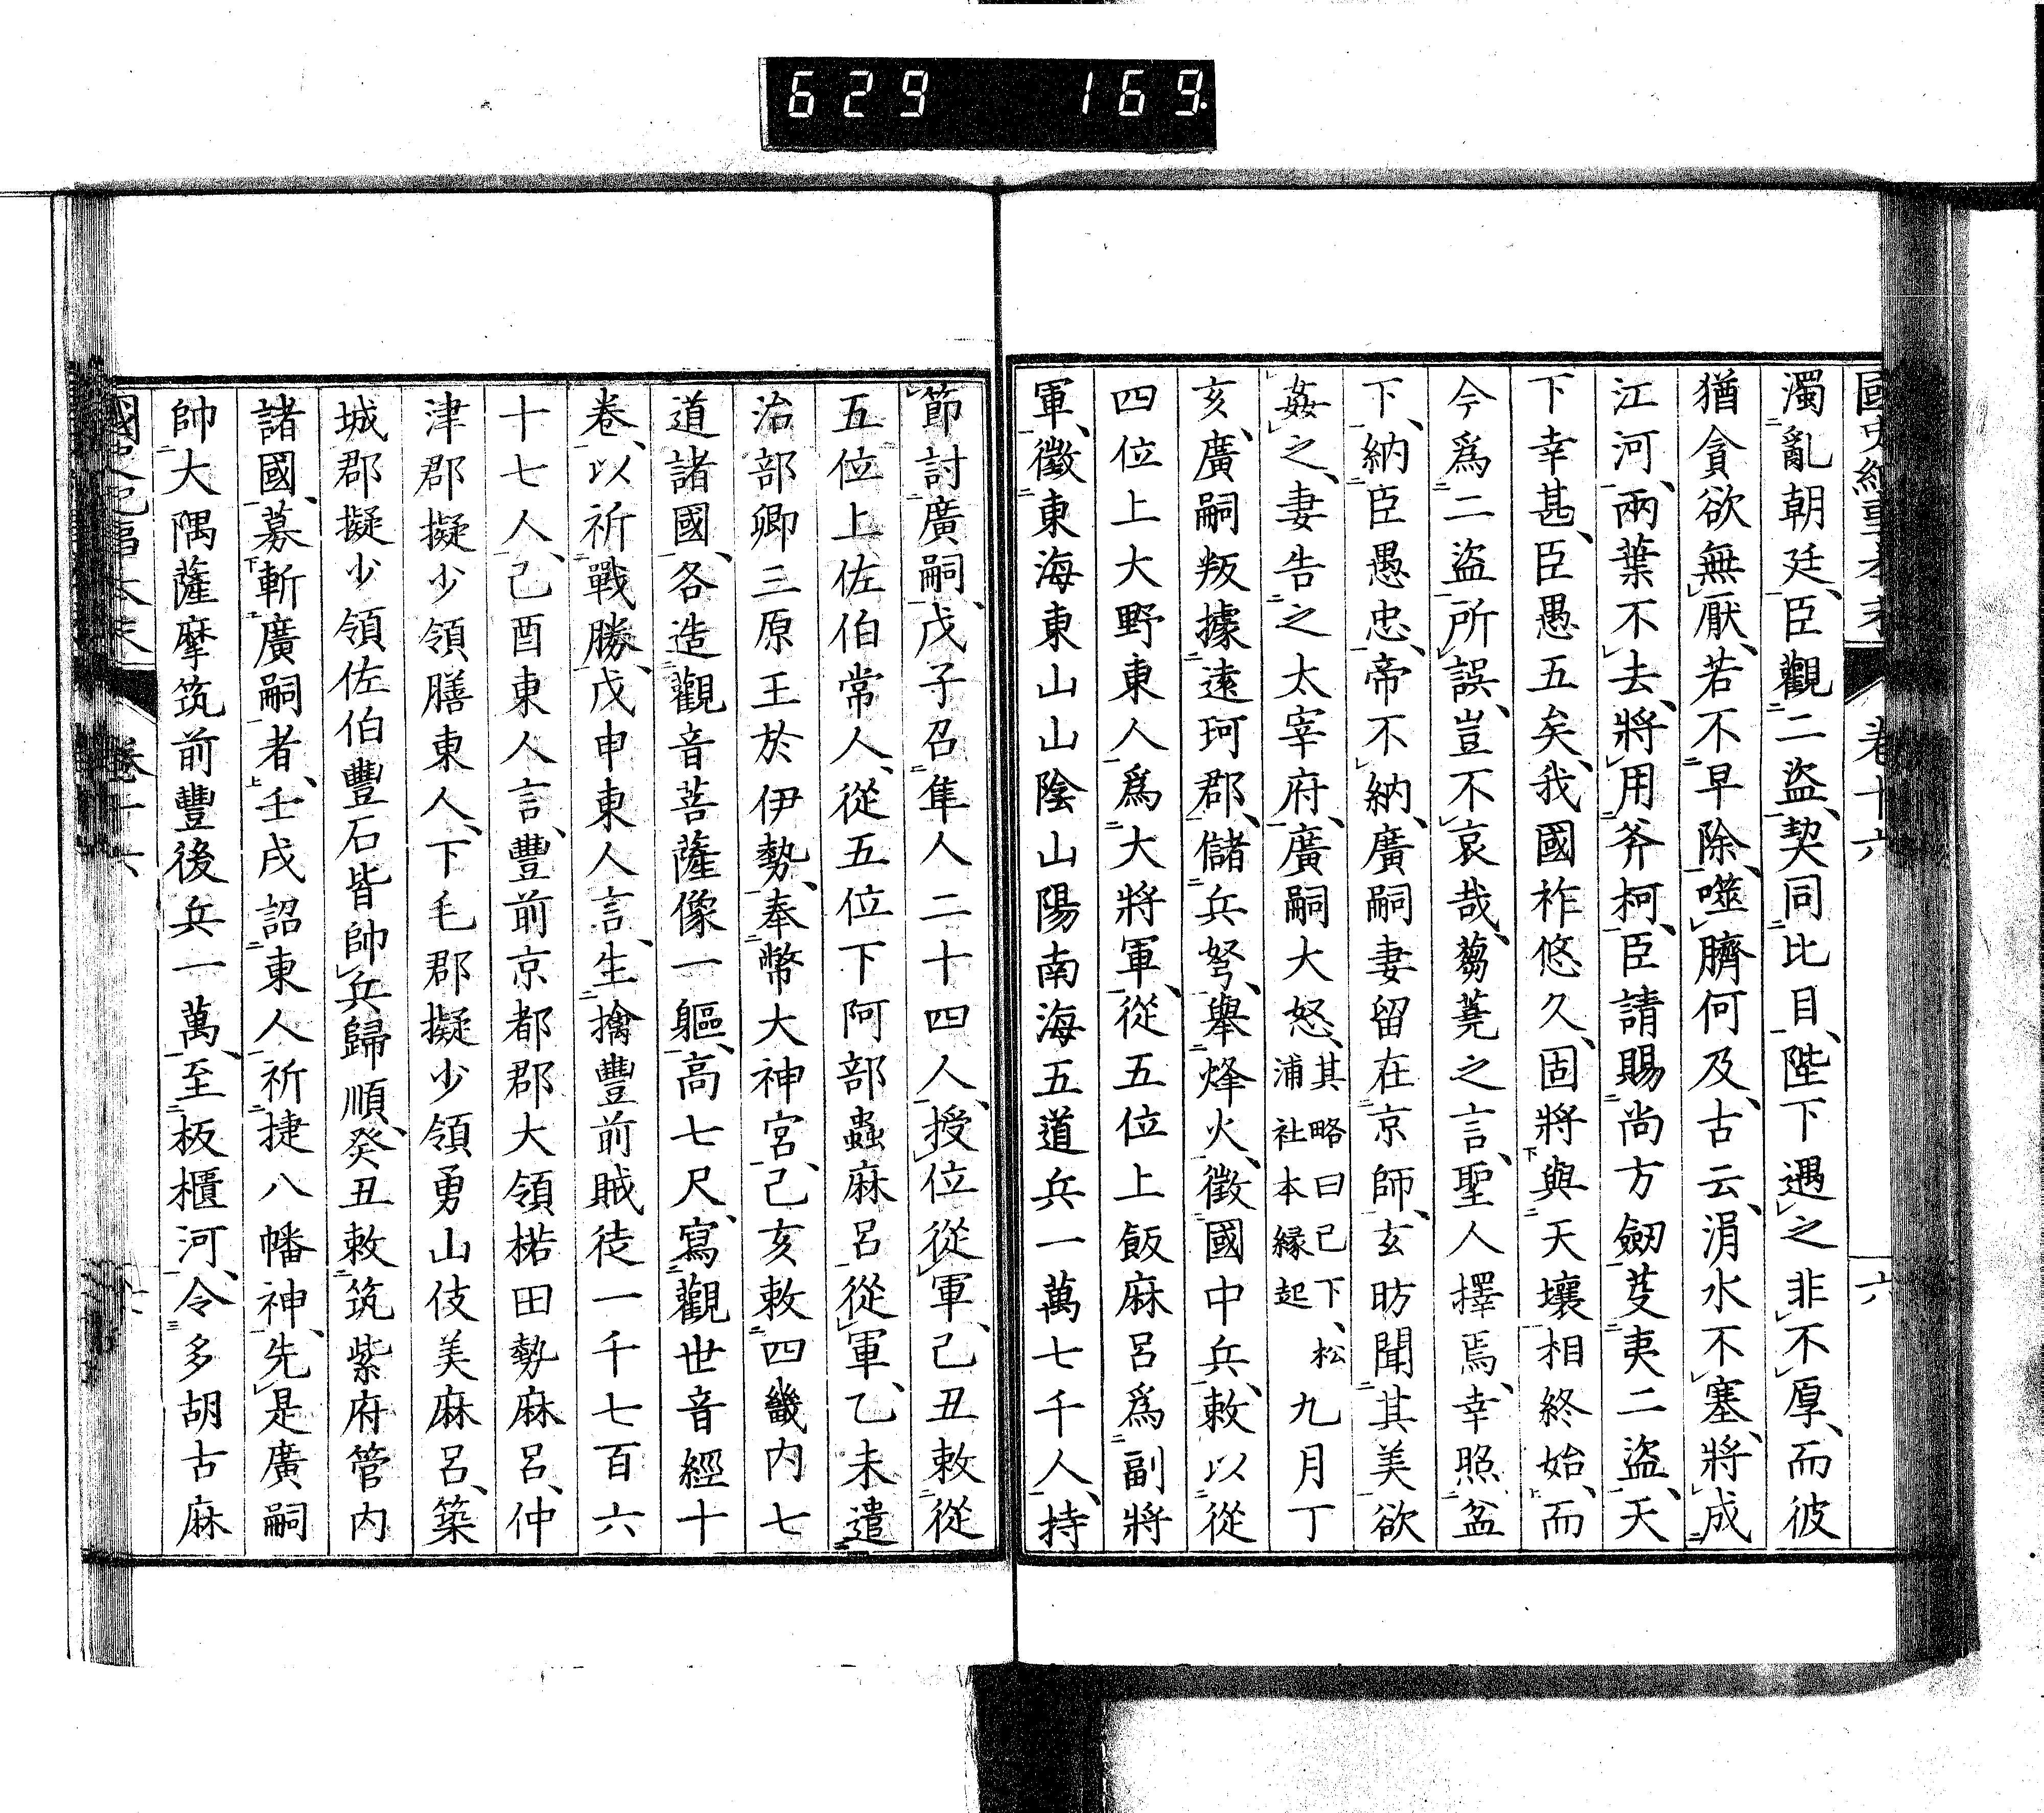 629 169
卷十六
六
濁亂朝廷、臣觀二盜、契同比目、陛下遇之非不厚、而彼
猶貪欲無厭、若不早除、噬臍何及、古云、涓水不塞、將成
江河、兩葉不去、將用斧柯、臣請賜尚方劒、芟夷二盜、天
下幸甚、臣愚五矣、我國祚悠久、固將與天壤相終始、而
今爲二盜所誤、豈不哀哉、蒭蕘之言、聖人擇焉、幸照盆
下、納臣愚忠、帝不納、廣嗣妻留在京師、玄昉聞其美、欲
姦之、妻告之太宰府、廣嗣大怒、其略曰已下、松浦社本緣起九月丁
亥、廣嗣叛據遠珂郡、儲兵弩、擧烽火、徵國中兵、敕以從
四位上大野東人爲大將軍、從五位上飯麻呂爲副將
軍、徵東海東山山陰山陽南海五道兵一萬七千人、持
節討廣嗣、戊子召隼人二十四人、授位從軍、己丑敕從
五位上佐伯常人、從五位下阿部蟲麻呂從軍、乙未遣
治部卿三原王於伊勢、奉幣大神宮、己亥敕四畿内七
道諸國、各造觀音菩薩像一軀、高七尺、寫觀世音經十
卷、以祈戰勝、戊申東人言、生擒豐前賊徒一千七百六
十七人、己酉東人言、豐前京都郡大領楉田勢麻呂、仲
津郡擬少領膳東人、下毛郡擬少領勇山伎美麻呂、築
城郡擬少領佐伯豐石皆帥兵歸順、癸丑敕筑紫府管内
諸國、募斬廣嗣者、壬戌詔東人祈捷八幡神、先是廣嗣
帥大隅薩摩筑前豐後兵一萬、至板櫃河、令多胡古麻